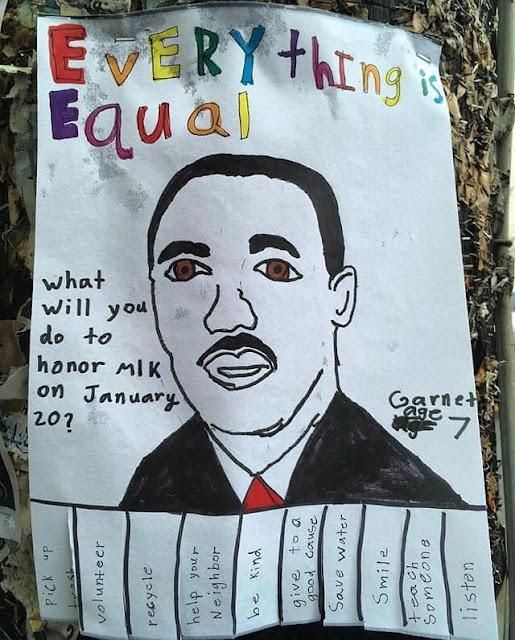 EVERYthing is
Equal
what
will you
do to
honor MLK
on January
20?
Garnet
age
7
Pick up
trash
volunteer
recycle
help your
Neighbor
be kind
give to a
good cause
Save water
Smile
teach
Someone
listen